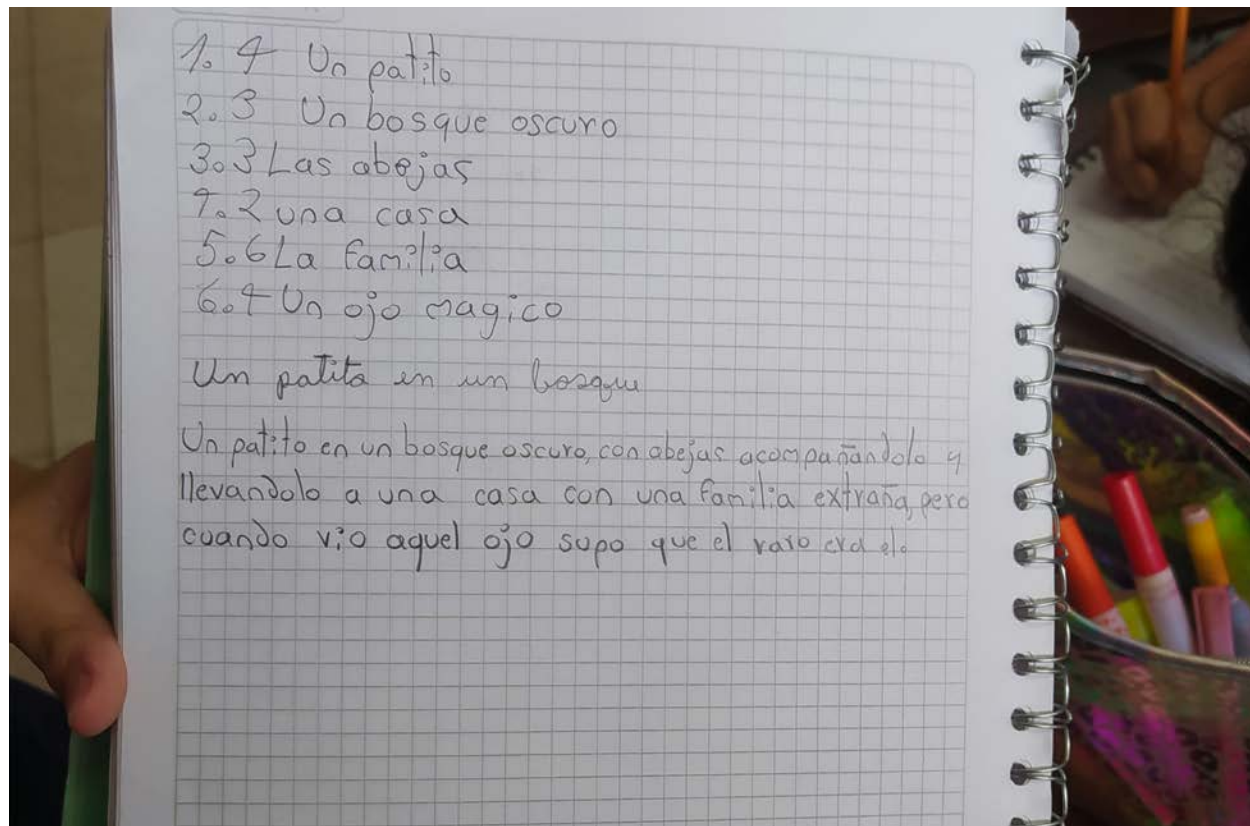 1. 4 Un patito
2. 3 Un bosque oscuro
3. 3 Las abejas
4. 2 una casa
5. 6 La familia
6. 4 Un ojo magico
Un patito en un bosque
Un patito en un bosque oscuro, con abejas acompañandolo y
llevandolo a una casa con una familia extraña, pero
cuando vio aquel ojo supo que el raro era el.